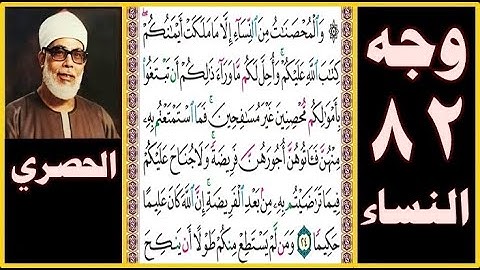 وجه
٨٢
النساء
الحصري
۞ وَٱلْمُحْصَنَٰتُ مِنَ ٱلنِّسَآءِ إِلَّا مَا مَلَكَتْ أَيْمَٰنُكُمْ ۖ
كِتَٰبَ ٱللَّهِ عَلَيْكُمْ ۚ وَأُحِلَّ لَكُم مَّا وَرَآءَ ذَٰلِكُمْ أَن تَبْتَغُوا۟
بِأَمْوَٰلِكُم مُّحْصِنِينَ غَيْرَ مُسَٰفِحِينَ ۚ فَمَا ٱسْتَمْتَعْتُم بِهِۦ
مِنْهُنَّ فَـَٔاتُوهُنَّ أُجُورَهُنَّ فَرِيضَةً ۚ وَلَا جُنَاحَ عَلَيْكُمْ
فِيمَا تَرَٰضَيْتُم بِهِۦ مِنۢ بَعْدِ ٱلْفَرِيضَةِ ۚ إِنَّ ٱللَّهَ كَانَ عَلِيمًا
حَكِيمًا ٢٤ وَمَن لَّمْ يَسْتَطِعْ مِنكُمْ طَوْلًا أَن يَنكِحَ